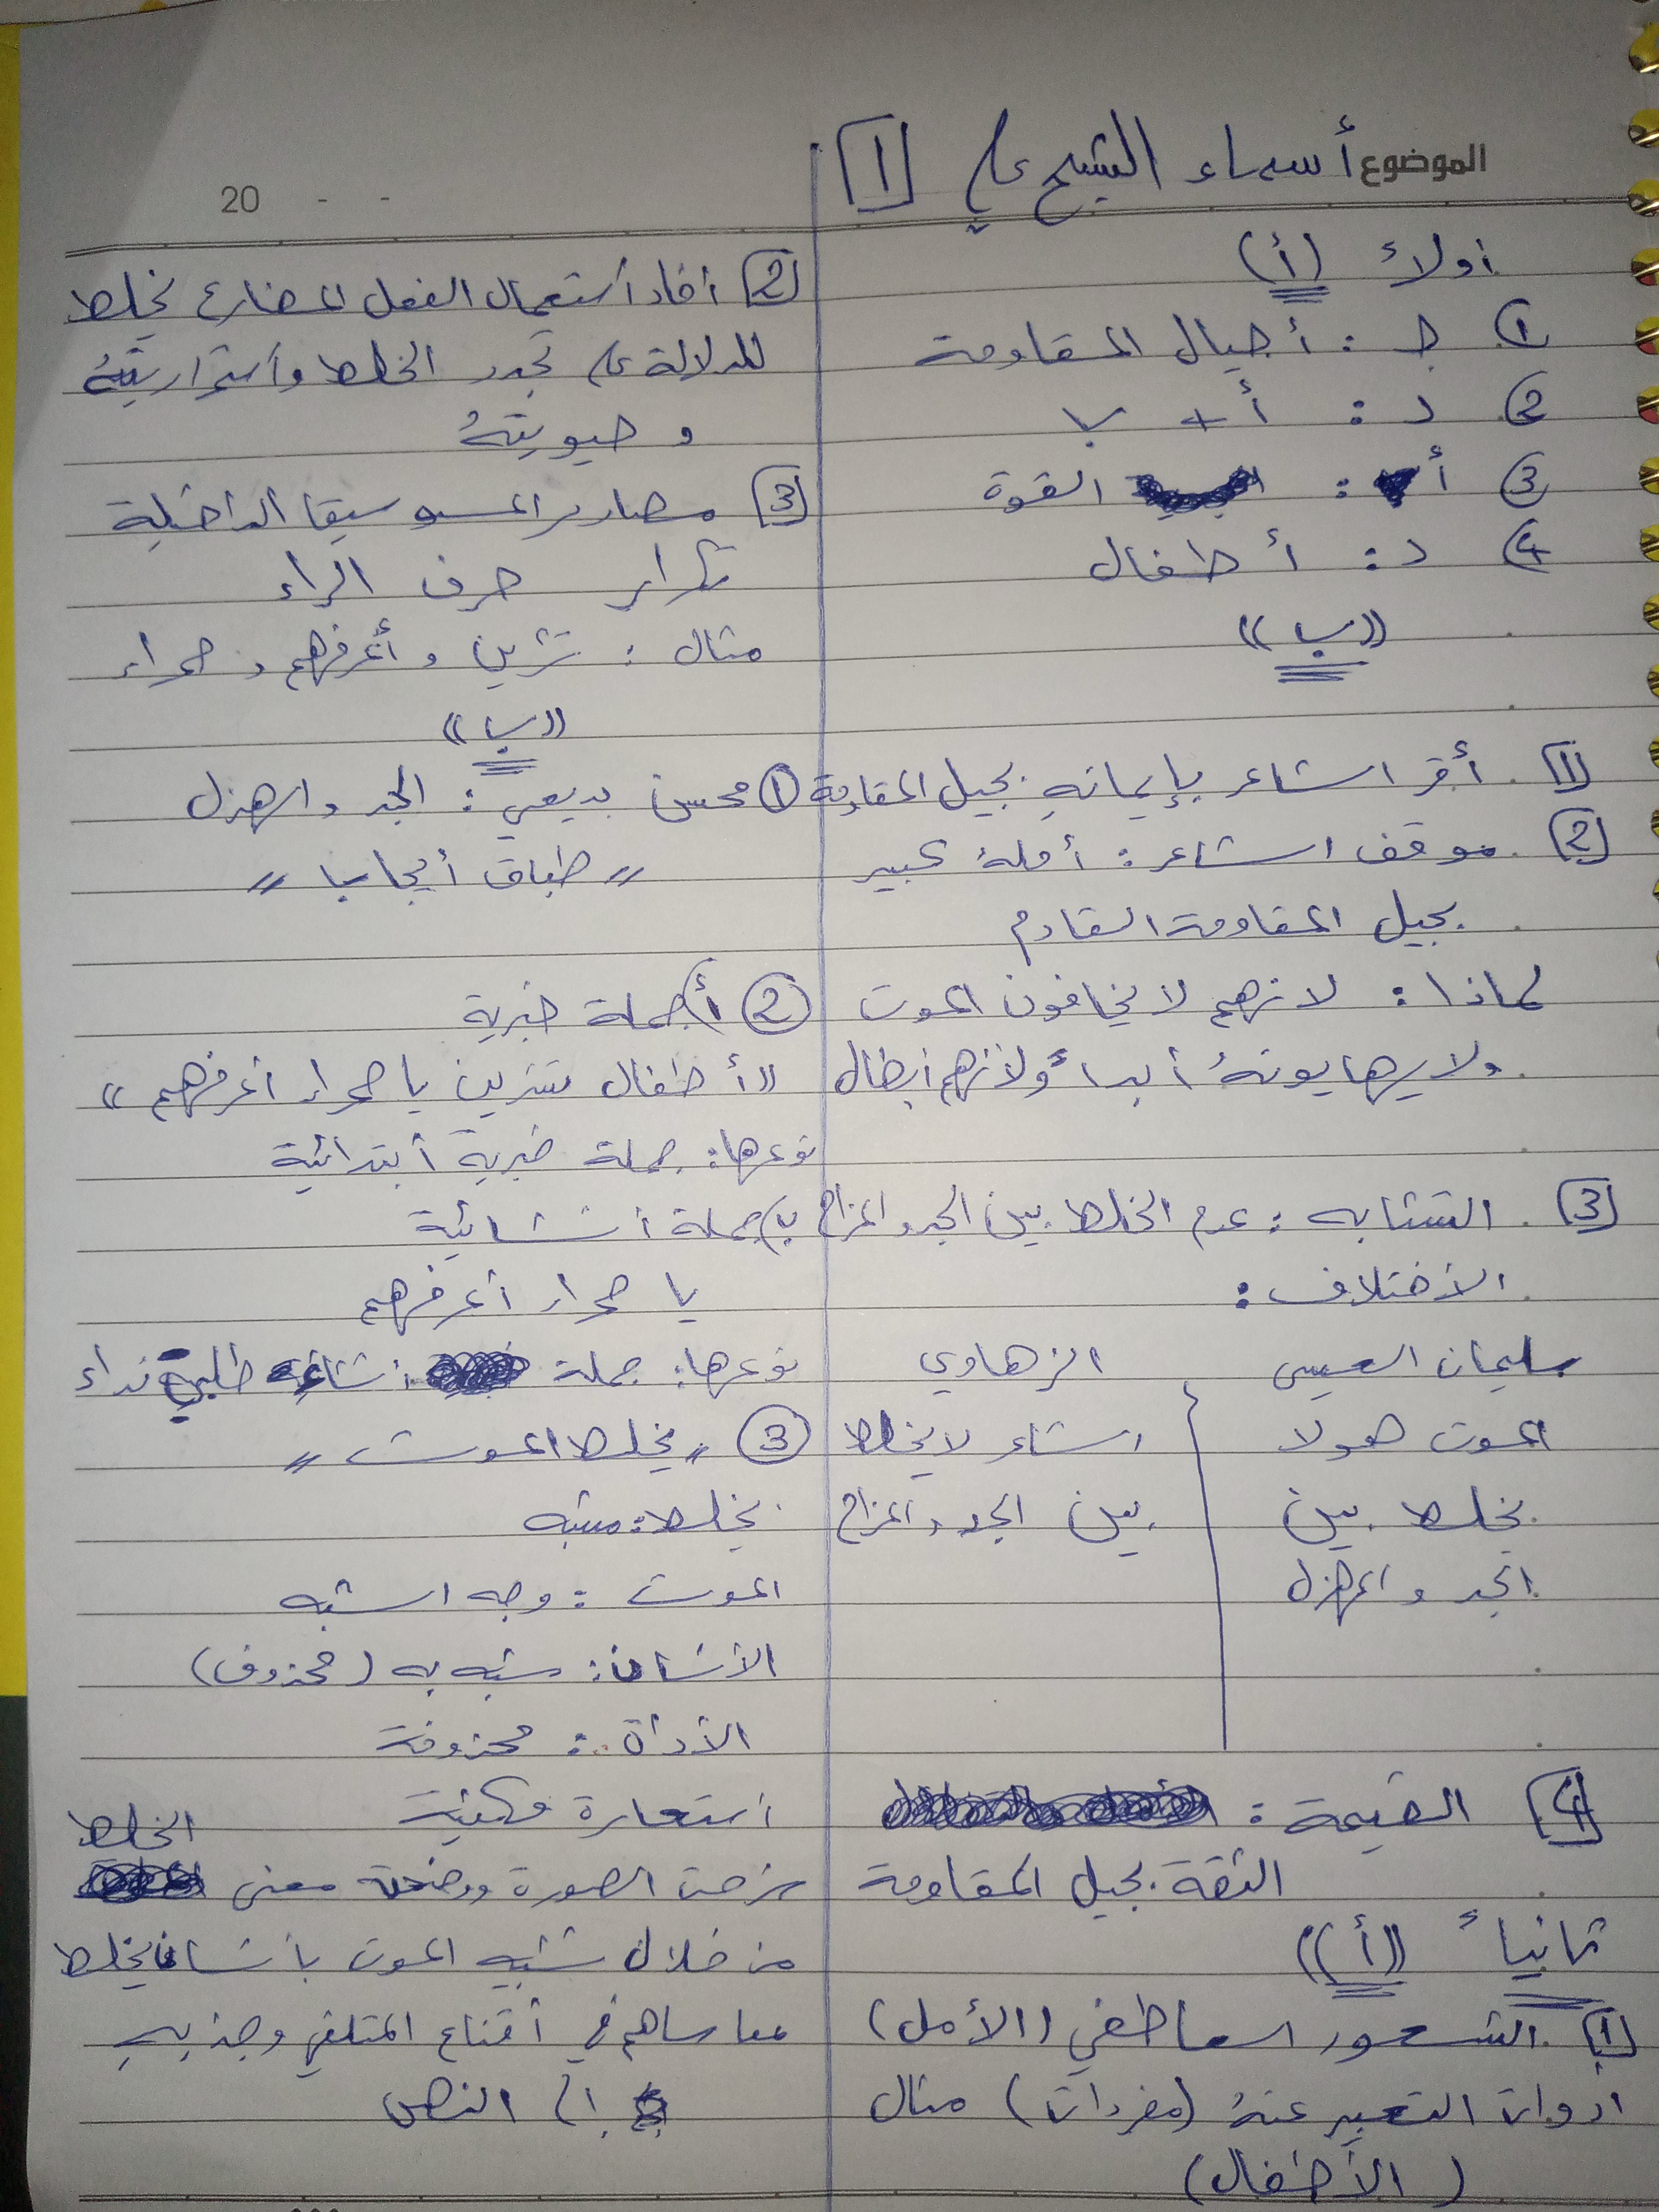 الموضوع أسماء الشيح علي [1]
20 - -
أولاً (أ)
① جـ : أجيال المقاومة
② د : أ + ب
③ أ : القوة
④ د : أطفال
((ب))
[1] أقر الشاعر بإيمانهِ بجيل المقاومة
[2] موقف الشاعر : أملهُ كبير
بجيل المقاومة القادم
لماذا : لانهم لا يخافون الموت
ولا يهابونهُ أبداً ولأنهم أبطال
[3] التشابه : عدم الخلط بين الجد والمزاح
الأختلاف :
سليمان العيسى
الموت هولا
يخلط بين
الجد والهزل
الزهاوي
الشاعر لا يخلط
بين الجد والمزاح
[4] القيمة :
الثقة بجيل المقاومة
ثانياً ((أ))
[1] الشعور العاطفي (الأمل)
ادوات التعبير عنهُ (مفردات) مثال
(الأطفال)
[2] أفاد أستعمال الفعل المضارع يخلط
للدلالة على تجدد الخلط وأستمراريتهُ
وحيويتهُ
[3] مصادر الموسيقا الداخلية
تكرار حرف الراء
مثال : تشرين و أعرفهم و صحراء
((ب))
① محسن بديعي : الجد والهزل
" طباق أيجاب "
② أ) جملة خبرية
"أطفال تشرين يا صحراء أعرفهم"
نوعها : جملة خبرية أبتدائية
ب) جملة أنشائية
يا صحراء أعرفهم
نوعها : جملة أنشائية طلبية نداء
③ " يخلط الموت "
يخلط : مشبه
الموت : وجه الشبه
الأنسان : مشبه به (محذوف)
الأداة : محذوفة
أستعارة مكنية
الخلط
شرحت الصورة ووضحة معنى
من خلال تشبيه الموت بأنسان يخلط
مما ساهم في أقناع المتلقي وجذبهِ
إلى النص